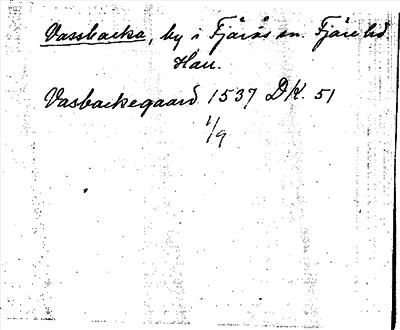 Vassbacka, by i Fjärås sn. Fjäre hd
Hall.
Vasbackegaard 1537 DK. 51
1/9